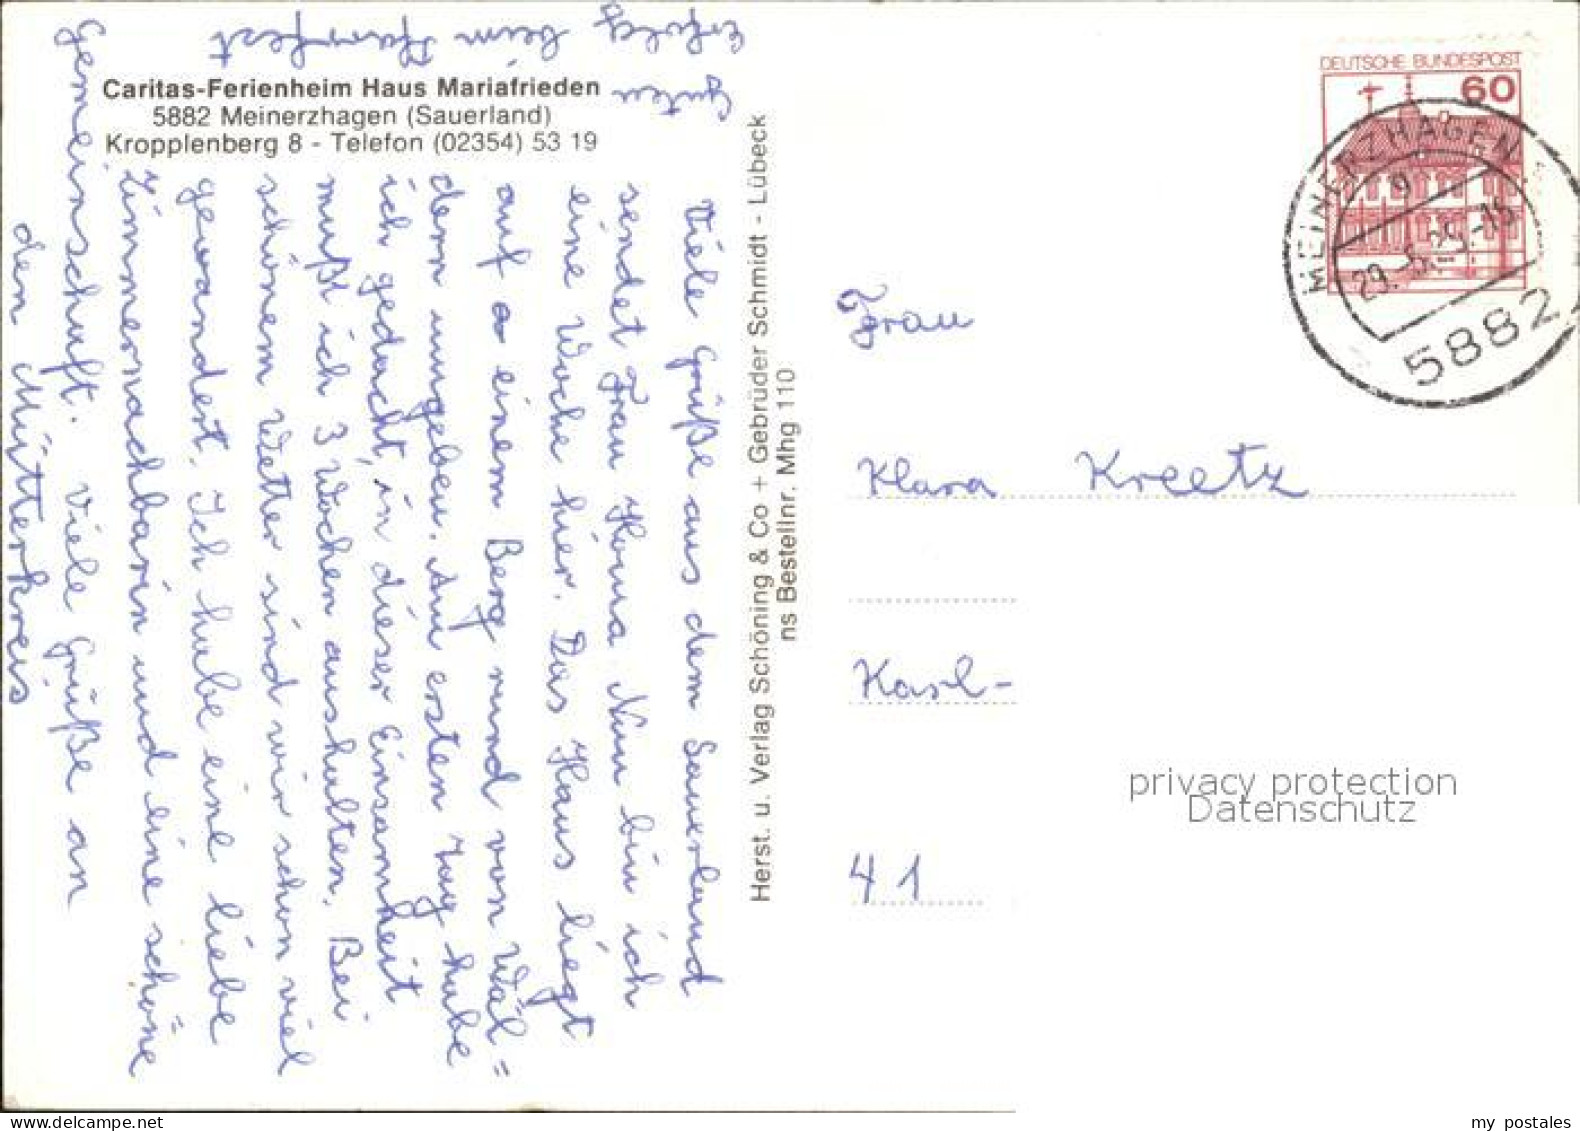 Caritas-Ferienheim Haus Mariafrieden
5882 Meinerzhagen (Sauerland)
Kropplenberg 8 - Telefon (02354) 53 19
Viele Grüße aus dem Sauerland
sendet Frau Nun bin ich
eine Woche hier. Das Haus liegt
auf einem Berg rund von Wäl=
dern umgeben. Am ersten Tag habe
ich gedacht, in dieser Einsamkeit
mußt ich 3 Wochen aushalten. Bei
schönem Wetter sind wir schon viel
gewandert. Ich habe eine liebe
Zimmernachbarin und eine schöne
Gemeinschaft. Viele Grüße an
den Mütterkreis
Guten
Erfolg beim Pfarrfest
Herst. u. Verlag Schöning & Co + Gebrüder Schmidt - Lübeck
ns Bestellnr. Mhg 110
DEUTSCHE BUNDESPOST
60
MEINERZHAGEN
29.-5.
-15
5882
Frau
Klara Kreetz
Karl-
41
privacy protection
Datenschutz
my postales